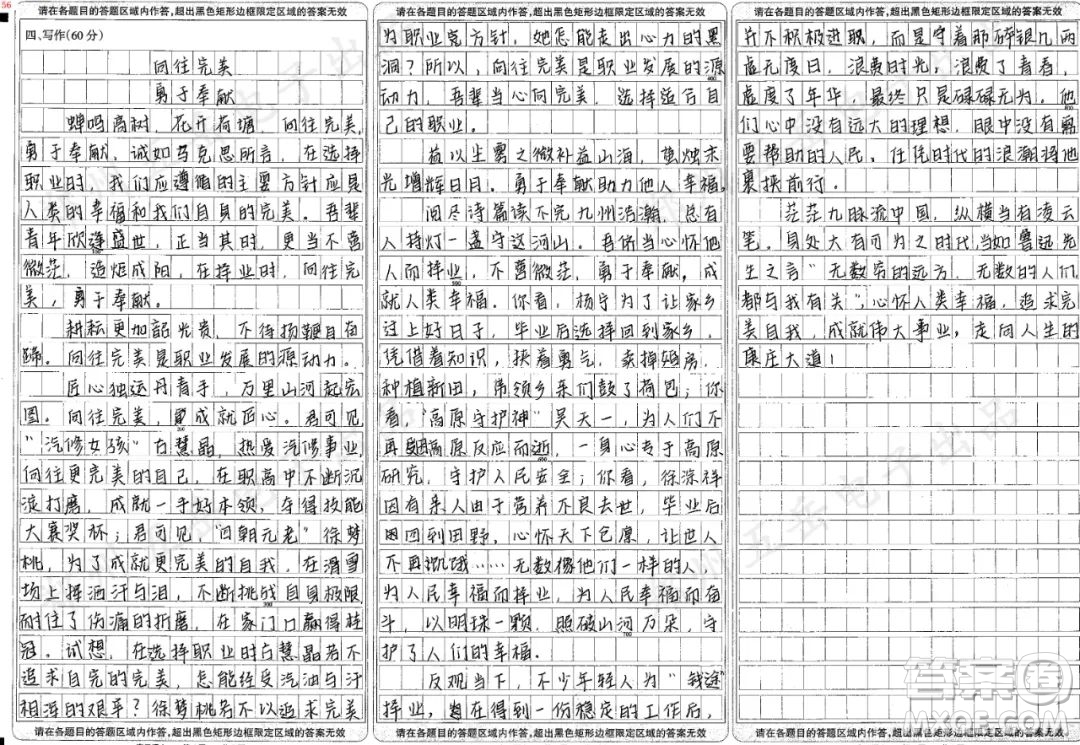 56
请在各题目的答题区域内作答,超出黑色矩形边框限定区域的答案无效
四、写作(60分)
向往完美
勇于奉献
蝉鸣高树,花开荷塘,向往完美,
勇于奉献,诚如马克思所言,在选择
职业时,我们应遵循的主要方针应是
人类的幸福和我们自身的完美。吾辈
青年欣逢盛世,正当其时,更当不啻
微茫,造炬成阳,在择业时,向往完
美,勇于奉献。
耕耘更加韶光贵,不待扬鞭自奋
蹄。向往完美是职业发展的源动力。
匠心独运丹青手,万里山河起宏
图。向往完美,成就匠心。君可见
“汽修女孩”古慧晶,热爱汽修事业,
向往更完美的自己,在职高中不断沉
淀打磨,成就一手好本领,夺得技能
大赛奖杯;君可见,“四朝元老”徐梦
桃,为了成就更完美的自我,在滑雪
场上挥洒汗与泪,不断挑战自身极限
耐住了伤痛的折磨,在家门口赢得桂
冠。试想,在选择职业时古慧晶若不
追求自完的完美,怎能经受汽油与汗
相浸的艰辛?徐梦桃若不以追求完美
请在各题目的答题区域内作答,超出黑色矩形边框限定区域的答案无效
请在各题目的答题区域内作答,超出黑色矩形边框限定区域的答案无效
为职业竞方针,她怎能走出心力的黑
洞?所以,向往完美是职业发展的源
动力,吾辈当心向完美,选择适合自
己的职业。
益以尘雾之微补益山海,萤烛末
光增辉日月。勇于奉献助力他人幸福。
阅尽诗篇读不完九州浩瀚,总有
人持灯一盏守这河山。吾侪当心怀他
人而择业,不啻微茫,勇于奉献。成
就人类幸福。你看,杨宁为了让家乡
过上好日子,毕业后选择回到家乡,
凭借着知识,挟着勇气,卖掉婚房,
种植新田,带领乡亲们鼓了荷包;你
看,“高原守护神”吴天一,为人们不
再因高原反应而逝,一身心专于高原
研究,守护人民安全;你看,徐淙祥
因有亲人由于营养不良去世,毕业后
回到田野,心怀天下仓廪,让世人
不再饥饿……无数像他们一样的人,
为人民幸福而择业,为人民幸福而奋
斗,以明珠一颗,照破山河万朵,守
护了人们的幸福。
反观当下,不少年轻人为“钱途”
择业,在得到一份稳定的工作后,
请在各题目的答题区域内作答,超出黑色矩形边框限定区域的答案无效
请在各题目的答题区域内作答,超出黑色矩形边框限定区域的答案无效
并不积极进职,而是守着那碎银几两
虚无度日,浪费时光,浪费了青春,
虚度了年华,最终只是碌碌无为。他
们心中没有远大的理想,眼中没有需
要帮助的人民。任凭时代的浪潮将他
裹挟前行。
茫茫九脉流中国,纵横当有凌云
笔。身处大有可为之时代,当如鲁迅先
生之言“无数穷的远方,无数的人们
都与我有关”,心怀人类幸福,追求完
美自我,成就伟大事业,走向人生的
康庄大道!
请在各题目的答题区域内作答,超出黑色矩形边框限定区域的答案无效
答案圈
MXQE.COM